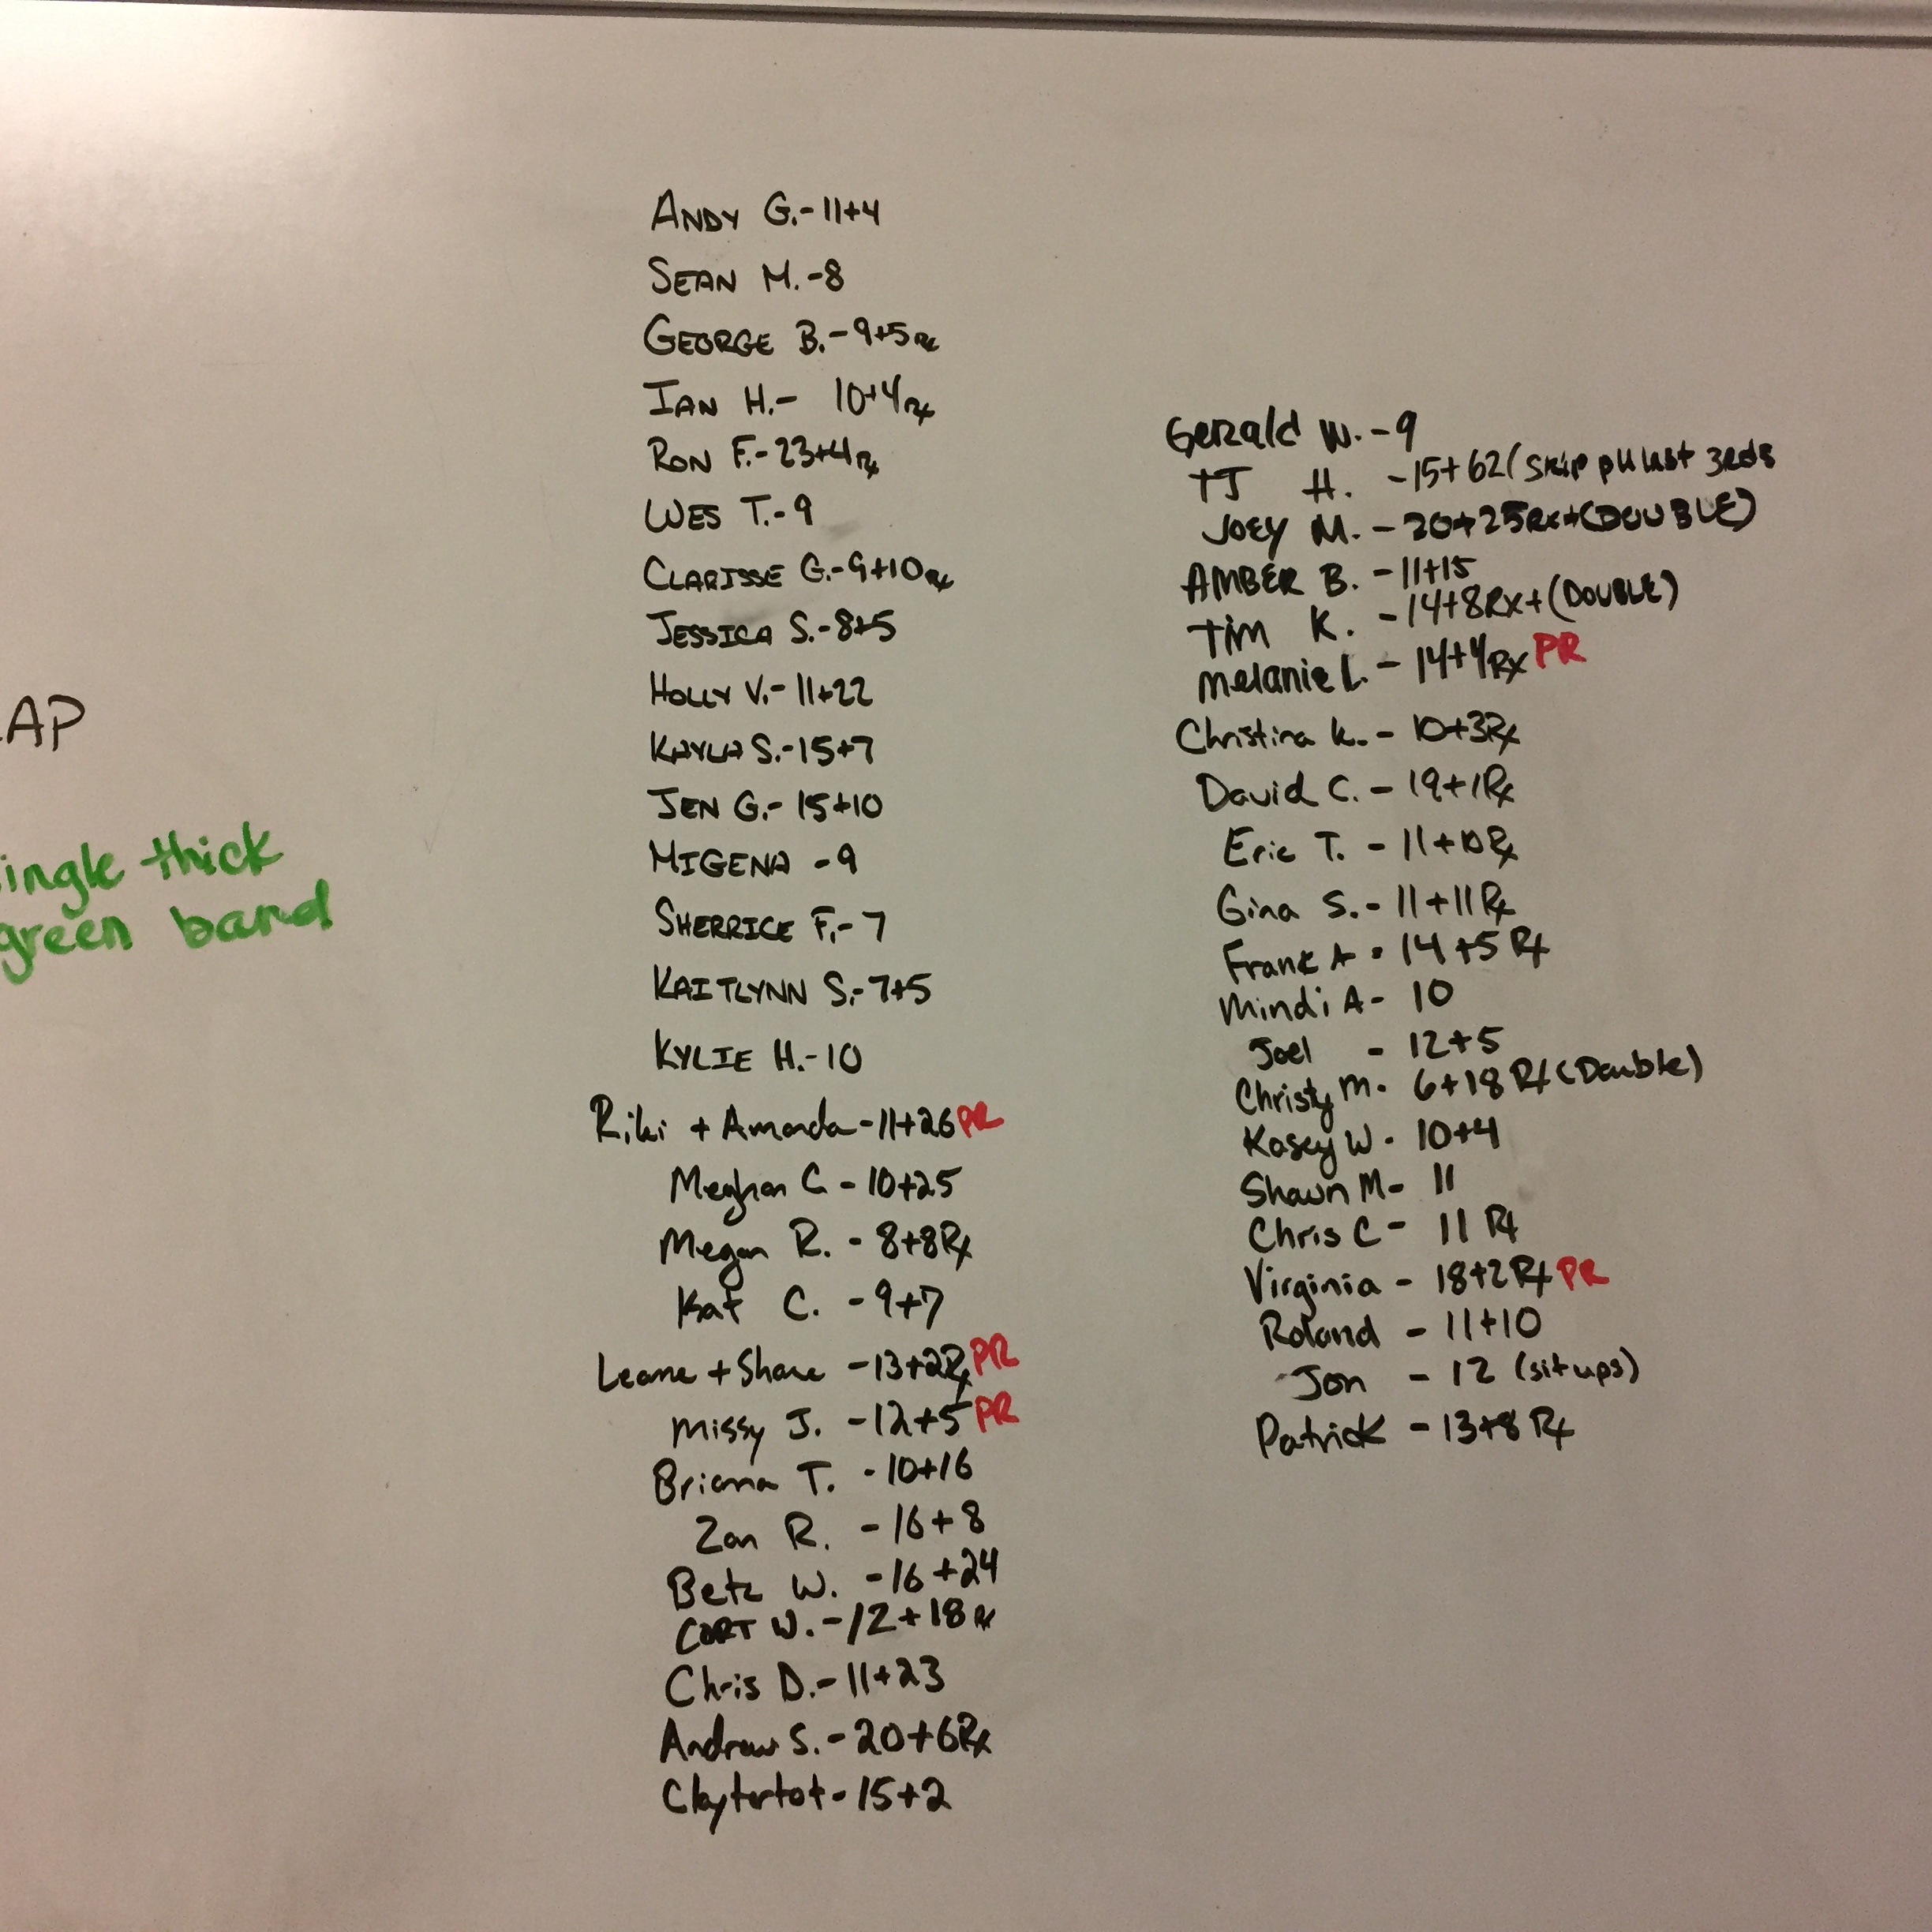 AP
ingle thick
green band
ANDY G.-11+4
SEAN M.-8
GEORGE B.-9+5Rx
IAN H.- 10+4Rx
RON F.-23+4Rx
WES T.-9
CLARISSE G.-9+10Rx
JESSICA S.-8+5
HOLLY V.-11+22
KAYLA S.-15+7
JEN G.-15+10
MIGENA -9
SHERRICE F.-7
KAITLYNN S.-7+5
KYLIE H.-10
Riki + Amanda-11+26 PR
Meghan C - 10+25
Megan R. - 8+8Rx
Kat C. - 9+7
Leane + Shane -13+2Rx PR
Missy J. -12+5 PR
Briana T. -10+16
Zan R. -16+8
Betz W. -16+24
CORT W.-12+18Rx
Chris D.-11+23
Andrew S.-20+6Rx
Claytertot-15+2
Gerald W.-9
TJ H. -15+62(skip pu last 3rds
JOEY M. -20+25Rx+(DOUBLE)
AMBER B. -11+15
Tim K. -14+8Rx+(DOUBLE)
Melanie L. - 14+4Rx PR
Christina K. - 10+3Rx
David C. - 19+1Rx
Eric T. - 11+10Rx
Gina S. - 11+11Rx
Frank A - 14+5 Rx
Mindi A- 10
Joel - 12+5
Christy M- 6+18 Rx (Double)
Kasey W - 10+4
Shawn M- 11
Chris C - 11 Rx
Virginia - 18+2Rx PR
Roland - 11+10
Jon - 12 (situps)
Patrick - 13+8 Rx